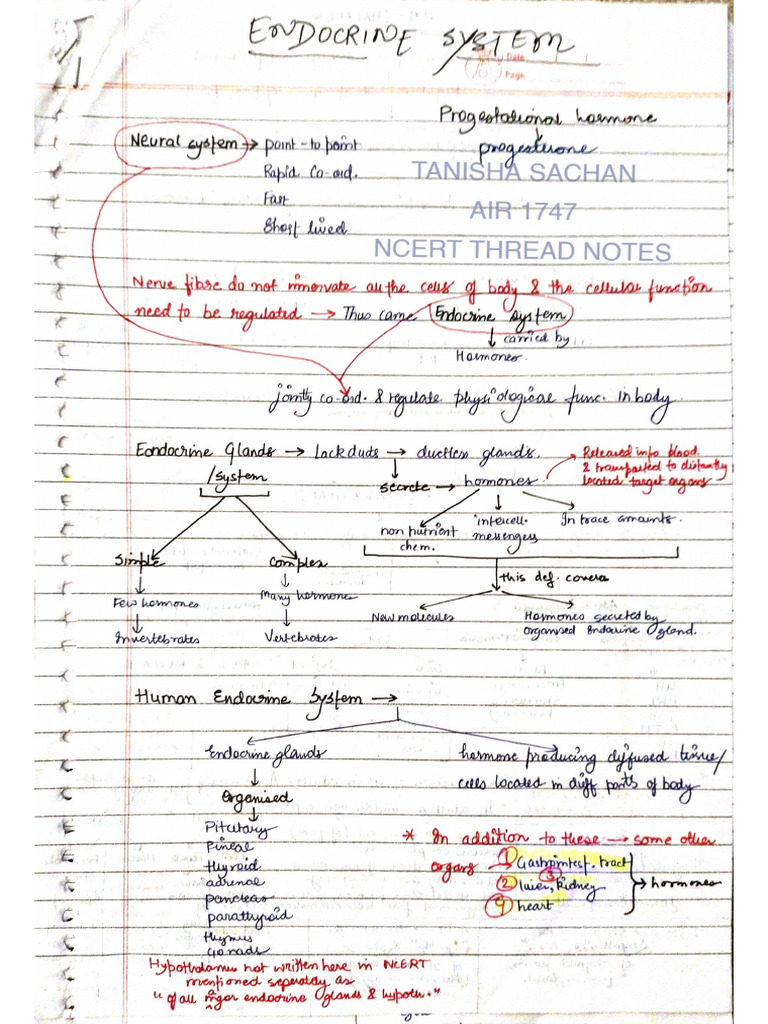 ENDOCRINE SYSTEM
Date
Page
Progestational hormone
progesterone
Neural system → point-to point
Rapid Co-ord.
Fast
Short lived
TANISHA SACHAN
AIR 1747
NCERT THREAD NOTES
Nerve fibre do not innervate all the cells of body & the cellular function
need to be regulated → Thus came Endocrine system
carried by
Hormones
jointly co-ord. & regulate physiological func. in body
Eondocrine Glands → Lack ducts → ductless glands.
/system
secrete → hormones
Released into blood
& transported to distantly
located target organs
non nutrient
chem.
intercell.
messengers
In trace amounts.
Simple
Complex
this def. covers
Few hormones
Many hormones
New molecules
Hormones secreted by
organised Endocrine gland.
Invertebrates
Vertebrates
Human Endocrine System →
Endocrine glands
hormone producing diffused tissue/
cells located in diff parts of body
Organised
Pitutary
Pineal
thyroid
adrenal
pancreas
parathyroid
thymus
Gonads
* In addition to these → some other
organs → 1 Gastrointest. tract
2 liver, 3 kidney
4 heart
→ hormones
Hypothalamus not written here in NCERT
mentioned seperately as
"of all major endocrine glands & hypoth."